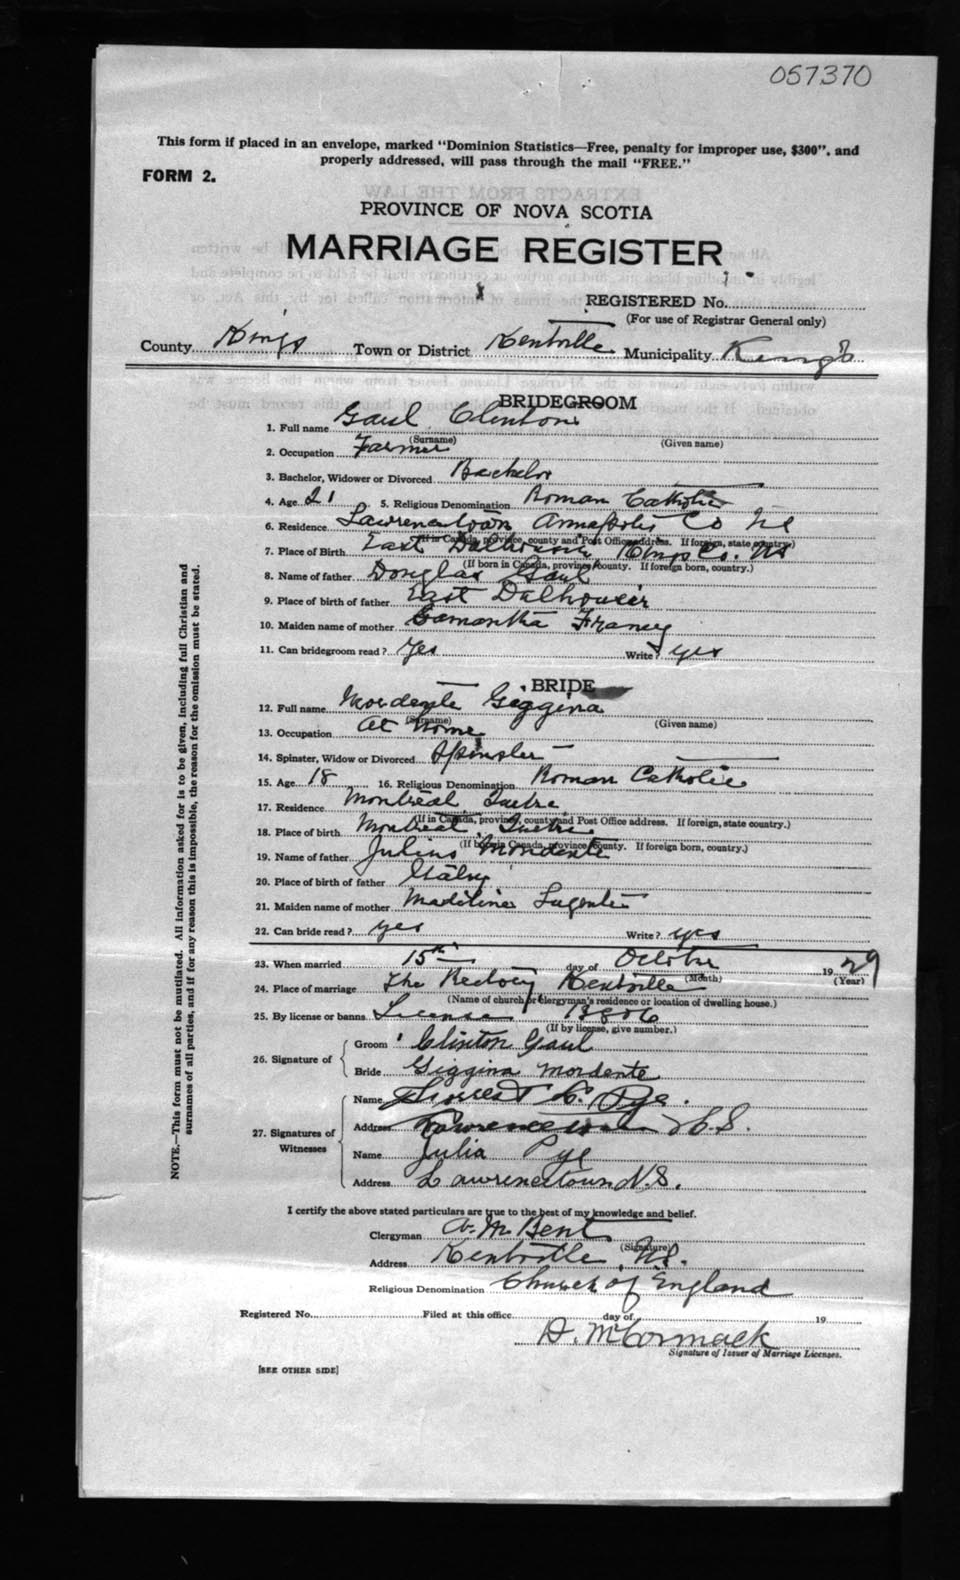 057370
This form if placed in an envelope, marked "Dominion Statistics—Free, penalty for improper use, $300", and
properly addressed, will pass through the mail "FREE."
FORM 2.
PROVINCE OF NOVA SCOTIA
MARRIAGE REGISTER
REGISTERED No.
(For use of Registrar General only)
County Kings Town or District Kentville Municipality Kings
BRIDEGROOM
1. Full name Gaul Clinton
(Surname) (Given name)
2. Occupation Farmer
3. Bachelor, Widower or Divorced Bachelor
4. Age 21 5. Religious Denomination Roman Catholic
6. Residence Lawrencetown Annapolis Co NS
(If in Canada, province, county and Post Office address. If foreign, state country.)
7. Place of Birth East Dalhousie Kings Co. NS
(If born in Canada, province, county. If foreign born, country.)
8. Name of father Douglas Gaul
9. Place of birth of father East Dalhousie
10. Maiden name of mother Samantha Franey
11. Can bridegroom read? Yes Write? yes
BRIDE
12. Full name Mordente Giggina
(Surname) (Given name)
13. Occupation At Home
14. Spinster, Widow or Divorced Spinster
15. Age 18 16. Religious Denomination Roman Catholic
17. Residence Montreal Quebec
(If in Canada, province, county and Post Office address. If foreign, state country.)
18. Place of birth Montreal, Quebec
(If born in Canada, province, county. If foreign born, country.)
19. Name of father Julius Mordente
20. Place of birth of father Italy
21. Maiden name of mother Madeline
22. Can bride read? yes Write? yes
23. When married 15th day of October 1929
(Month) (Year)
24. Place of marriage The Rectory Kentville
(Name of church or clergyman's residence or location of dwelling house.)
25. By license or banns License
(If by license, give number.)
26. Signature of
Groom Clinton Gaul
Bride Giggina Mordente
27. Signatures of Witnesses
Name Forrest C. Pye.
Address Lawrencetown N.S.
Name Julia Pye
Address Lawrencetown N.S.
I certify the above stated particulars are true to the best of my knowledge and belief.
Clergyman A. M. Bent
(Signature)
Address Kentville, N.S.
Religious Denomination Church of England
Registered No. Filed at this office day of 19
D. McCormack
Signature of Issuer of Marriage Licenses.
[SEE OTHER SIDE]
NOTE.—This form must not be mutilated. All information asked for is to be given, including full Christian and
surnames of all parties, and if for any reason this is impossible, the reason for the omission must be stated.